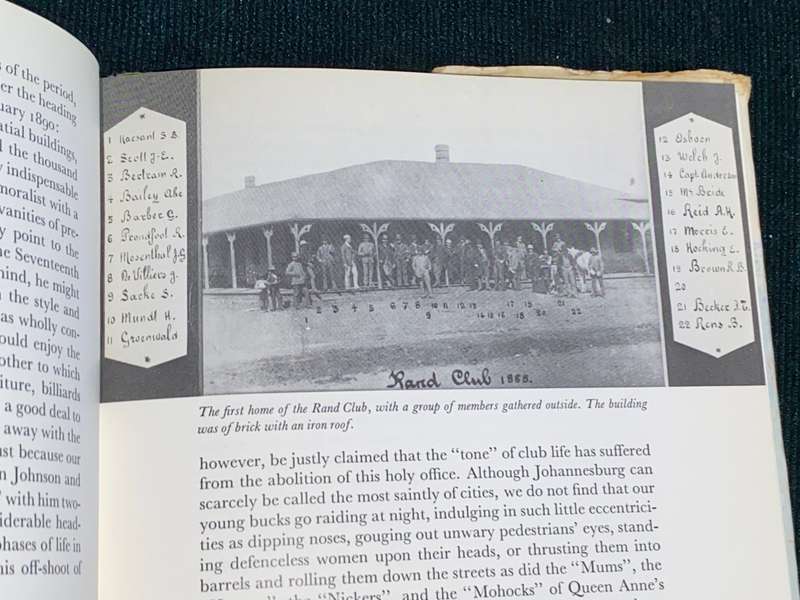 s of the period,
er the heading
uary 1890:
atial buildings,
d the thousand
y indispensable
moralist with a
vanities of pre-
y point to the
he Seventeenth
hind, he might
n the style and
as wholly con-
ould enjoy the
other to which
iture, billiards
a good deal to
away with the
ust because our
n Johnson and
with him two-
iderable head-
phases of life in
his off-shoot of
1 S.B.
2 Scott J.E.
3 Bertram R.
4 Bailey Abe
5 Barber G.
6 Proudfoot R.
7 Mosenthal J.G.
8 De Villiers J.
9 Sacke S.
10 Mundt H.
11 Groenwald
12 Osborn
13 Welch J.
14 Capt Anderson
15 McBride
16 Reid A.H.
17 Morris E.
18 Hocking E.
19 Brown R.B.
20
21 Becker J.T.
22 Rens B.
1 2 3 4 5 6 7 8 9 10 11 12 13 14 15 16 17 18 19 20 21 22
Rand Club 1888.
The first home of the Rand Club, with a group of members gathered outside. The building
was of brick with an iron roof.
however, be justly claimed that the “tone” of club life has suffered
from the abolition of this holy office. Although Johannesburg can
scarcely be called the most saintly of cities, we do not find that our
young bucks go raiding at night, indulging in such little eccentrici-
ties as dipping noses, gouging out unwary pedestrians' eyes, stand-
ing defenceless women upon their heads, or thrusting them into
barrels and rolling them down the streets as did the “Mums”, the
the “Nickers”, and the “Mohocks” of Queen Anne's